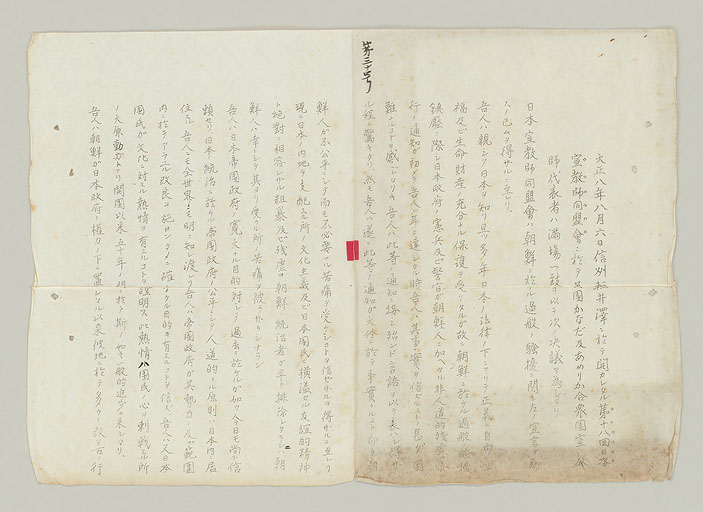 第三十号
大正八年八月六日信州軽井澤ニ於テ開カレタル第十八回日本
宣教師同盟會ニ於テ英国かなだ及あめりか合衆国宣教
師代表者ハ満場一致ヲ以テ次ノ決議ヲ為セリ
日本宣教師同盟會ハ朝鮮ニ於ル過般ノ騒擾ニ関シ左ノ宣言ヲ為
スノ已ムヲ得サルニ至レリ
吾人ハ親シク日本ヲ知リ且ツ多年日本ノ法律ノ下ニアリテ正義ト自由
福及ビ生命財産ノ充分ナル保護ヲ受ケタルガ故ニ朝鮮ニ於ケル過般ノ騒擾
鎮壓ニ際シ日本政府ノ憲兵及ビ警官ガ朝鮮人ニ加ヘタル非人道的残虐
行ノ通知ガ初メテ吾人ノ耳ニ達シタル時吾人ハ其ノ事實ヲ信ズルコト甚ダ困
難ナルコトヲ感ジタリキ吾人ハ此等ノ通知ニ接シ殆ンド言語ヲ以テ表ハシ得ザ
ル程ニ驚キタリ然モ吾人ハ遂ニ此等ノ通知ガ大体ニ於テ事實ナルコト即チ朝
鮮人が不公平ニシテ而モ不必要ナル苦痛ヲ受ケシコトヲ信セサルヲ得サルニ至レリ
現ニ日本ノ内地ヲ支配スル所ノ文化主義及ビ日本国民ニ横溢セル友誼的精神
ト絶對ニ相容レサル粗暴及ビ残虐ナ朝鮮ノ統治者ガ早ク排除シタリシニハ朝
鮮人ハ幸ニシテ其ヨリ受クル所ノ苦痛ヲ脱セサリシナラン
吾人ハ日本帝国政府ノ寛大ナル目的ニ対シテ過去ニ於ケルガ如ク今日モ尚ホ信
頼セリ日本統治ニ於ケル帝国政府ノ公平ニシテ人道的ナル原則ハ日本内居
住ノ吾人ニモ全世界ニモ明ニ知レ渡レリ吾人ハ帝国政府ガ其勢力ノ及ブ範囲
内ニ於テアラユル改良ヲ施サンガタメニ確乎タル目的ヲ有スルコトヲ信ズ吾人ハ又日本
国民ガ文化ニ対スル熱情ヲ有スルコトヲ證明ス此熱情ハ国民ノ心ヲ刺戟スル所
ノ大原動力トナリ開国以来五十年ノ間ニ於テ斯ノ如キ般的進歩ヲ来シタリ
吾人ハ朝鮮ガ日本政府ノ権力ノ下ニ置レタル以来彼地ニ於テ多クノ改革ガ行